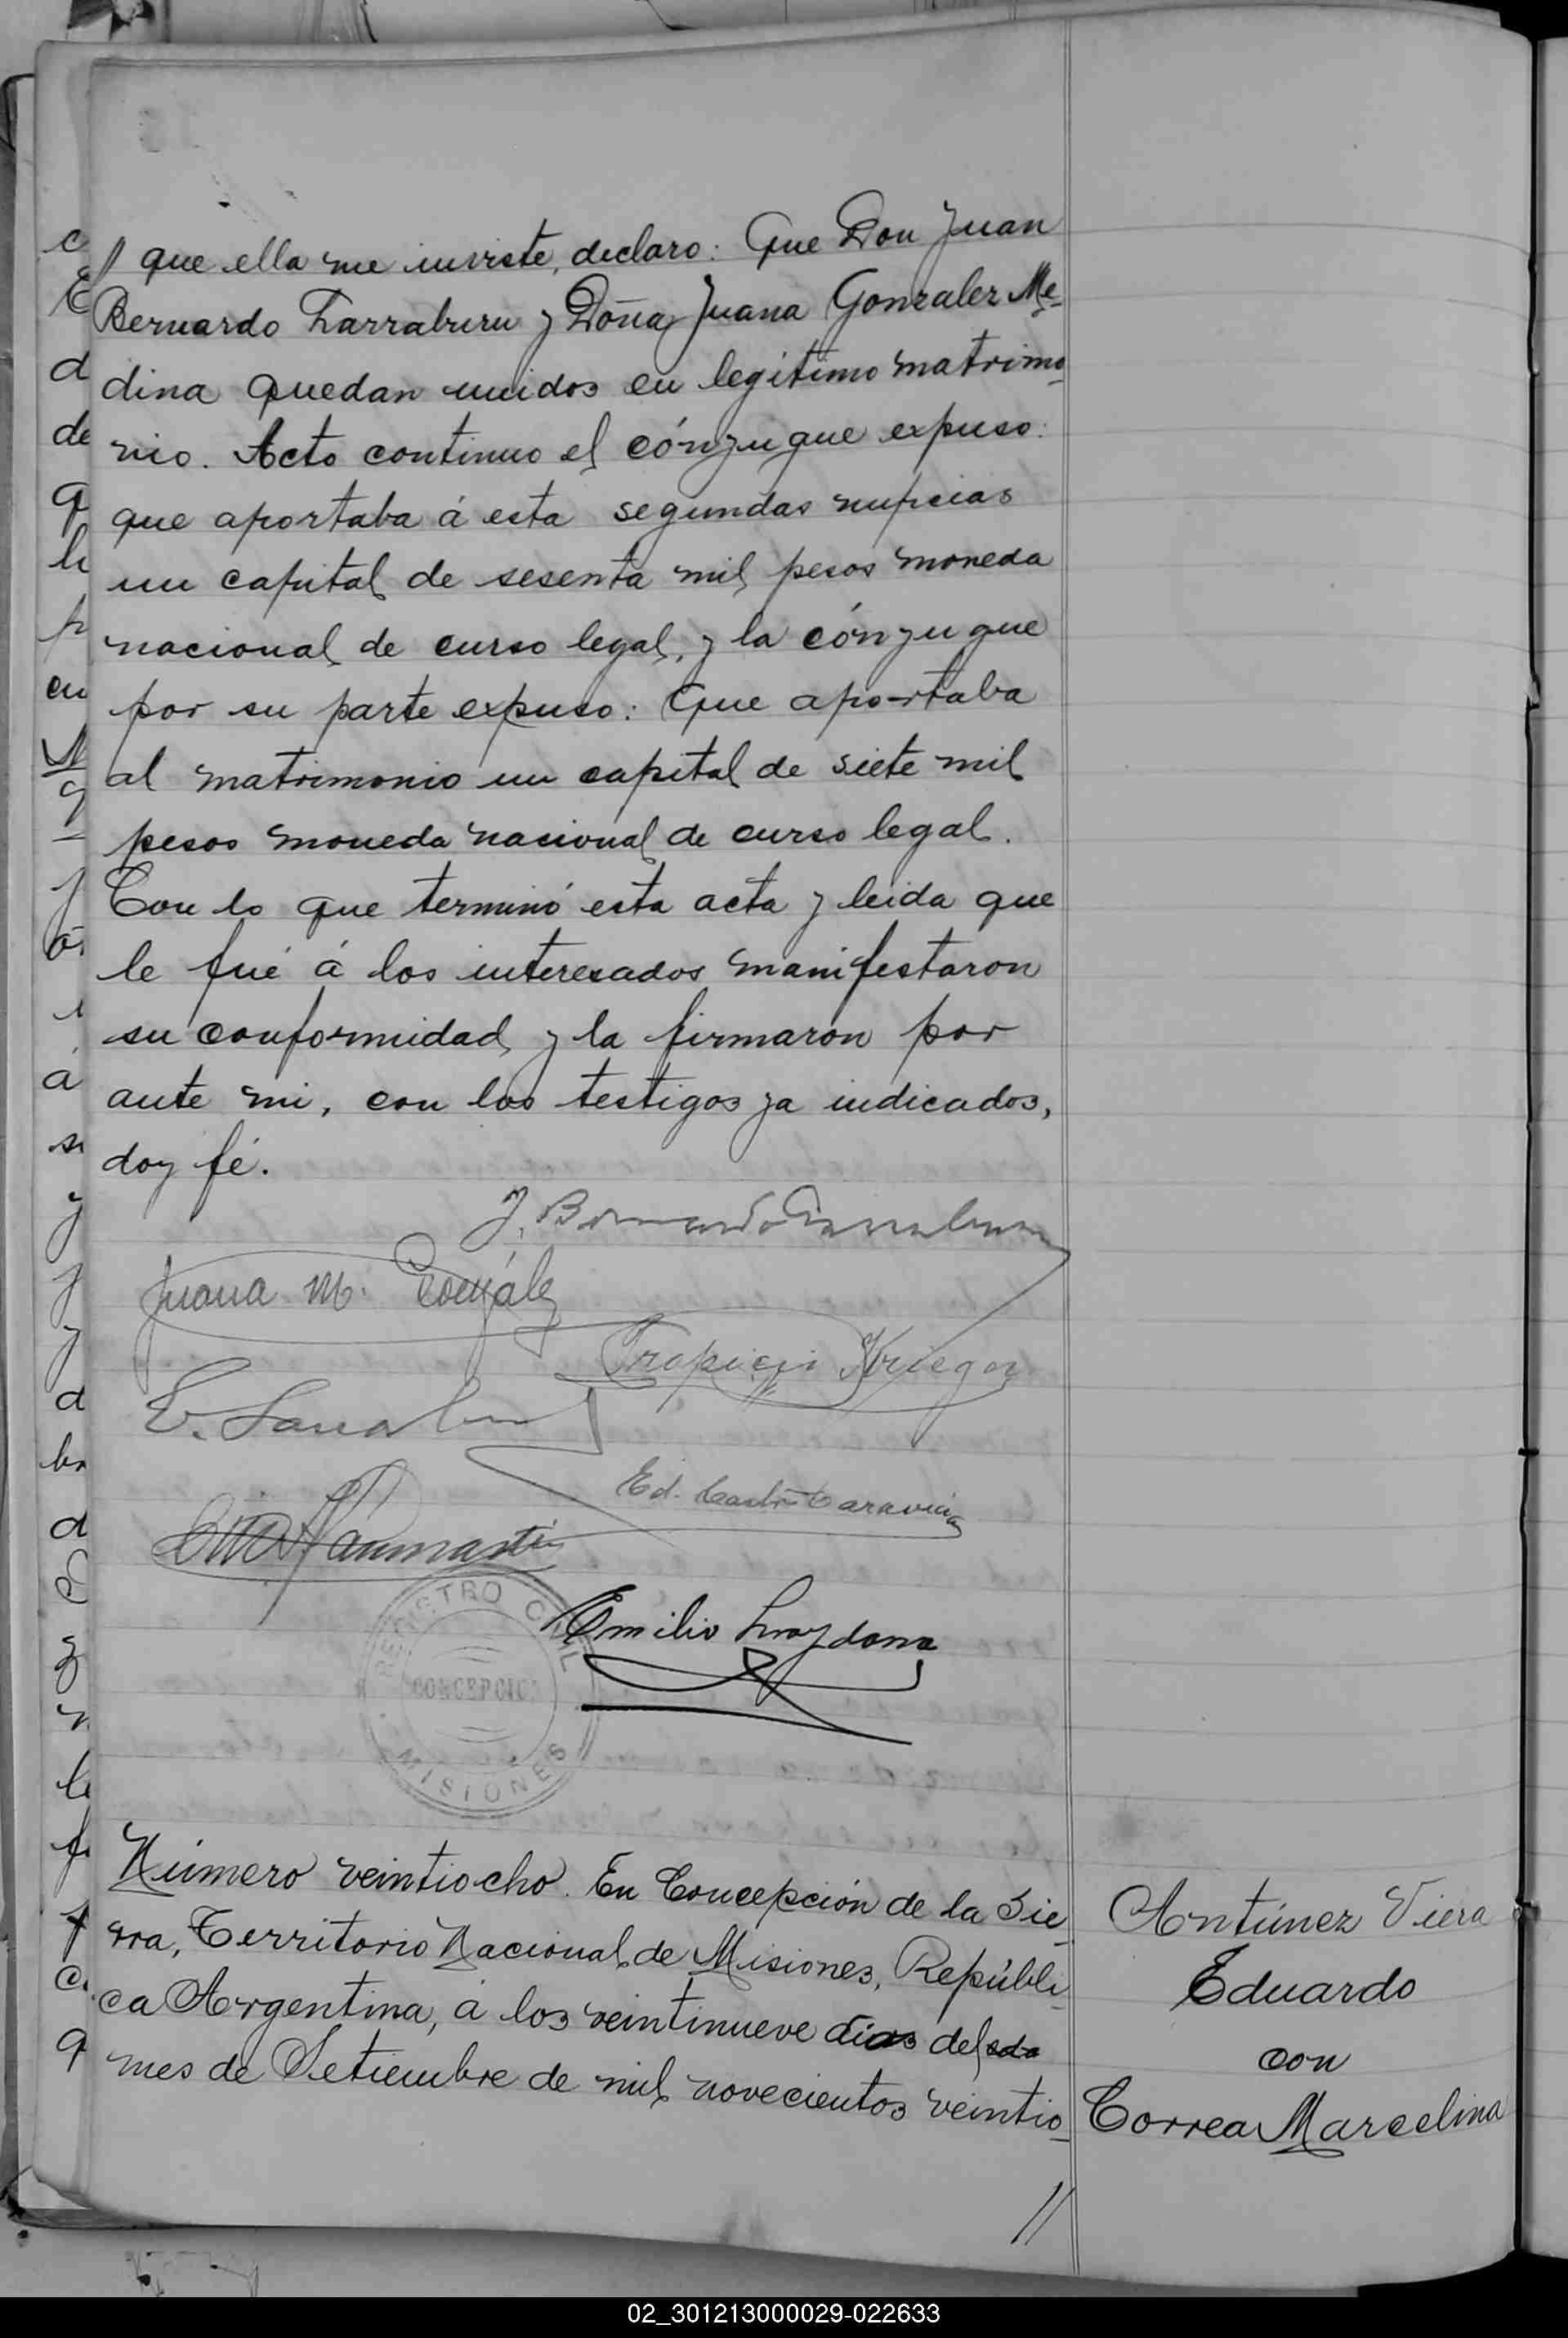 // que ella me inviste, declaro: Que Don Juan
Bernardo Larraburu y Doña Juana Gonzalez Me-
dina quedan unidos en legítimo matrimo-
nio. Acto continuo el cónyugue expuso:
que aportaba á esta segundas nupcias
un capital de sesenta mil pesos moneda
nacional de curso legal, y la cónyugue
por su parte expuso: Que aportaba
al matrimonio un capital de siete mil
pesos moneda nacional de curso legal.
Con lo que terminó esta acta y leida que
le fué á los interesados manifestaron
su conformidad y la firmaron por
ante mi, con los testigos ya indicados,
doy fé.
J. Bernardo Larraburu
Juana M. González
Kruegger
E. Larraburu
Ed.
Emilio
REGISTRO CIVIL
CONCEPCION
MISIONES
Número veintiocho. En Concepción de la Sie-
rra, Territorio Nacional de Misiones, Repúbli-
ca Argentina, á los veintinueve dias del
mes de Setiembre de mil novecientos veintio-
//
Antúnez Viera
Eduardo
con
Correa Marcelina
02_301213000029-022633